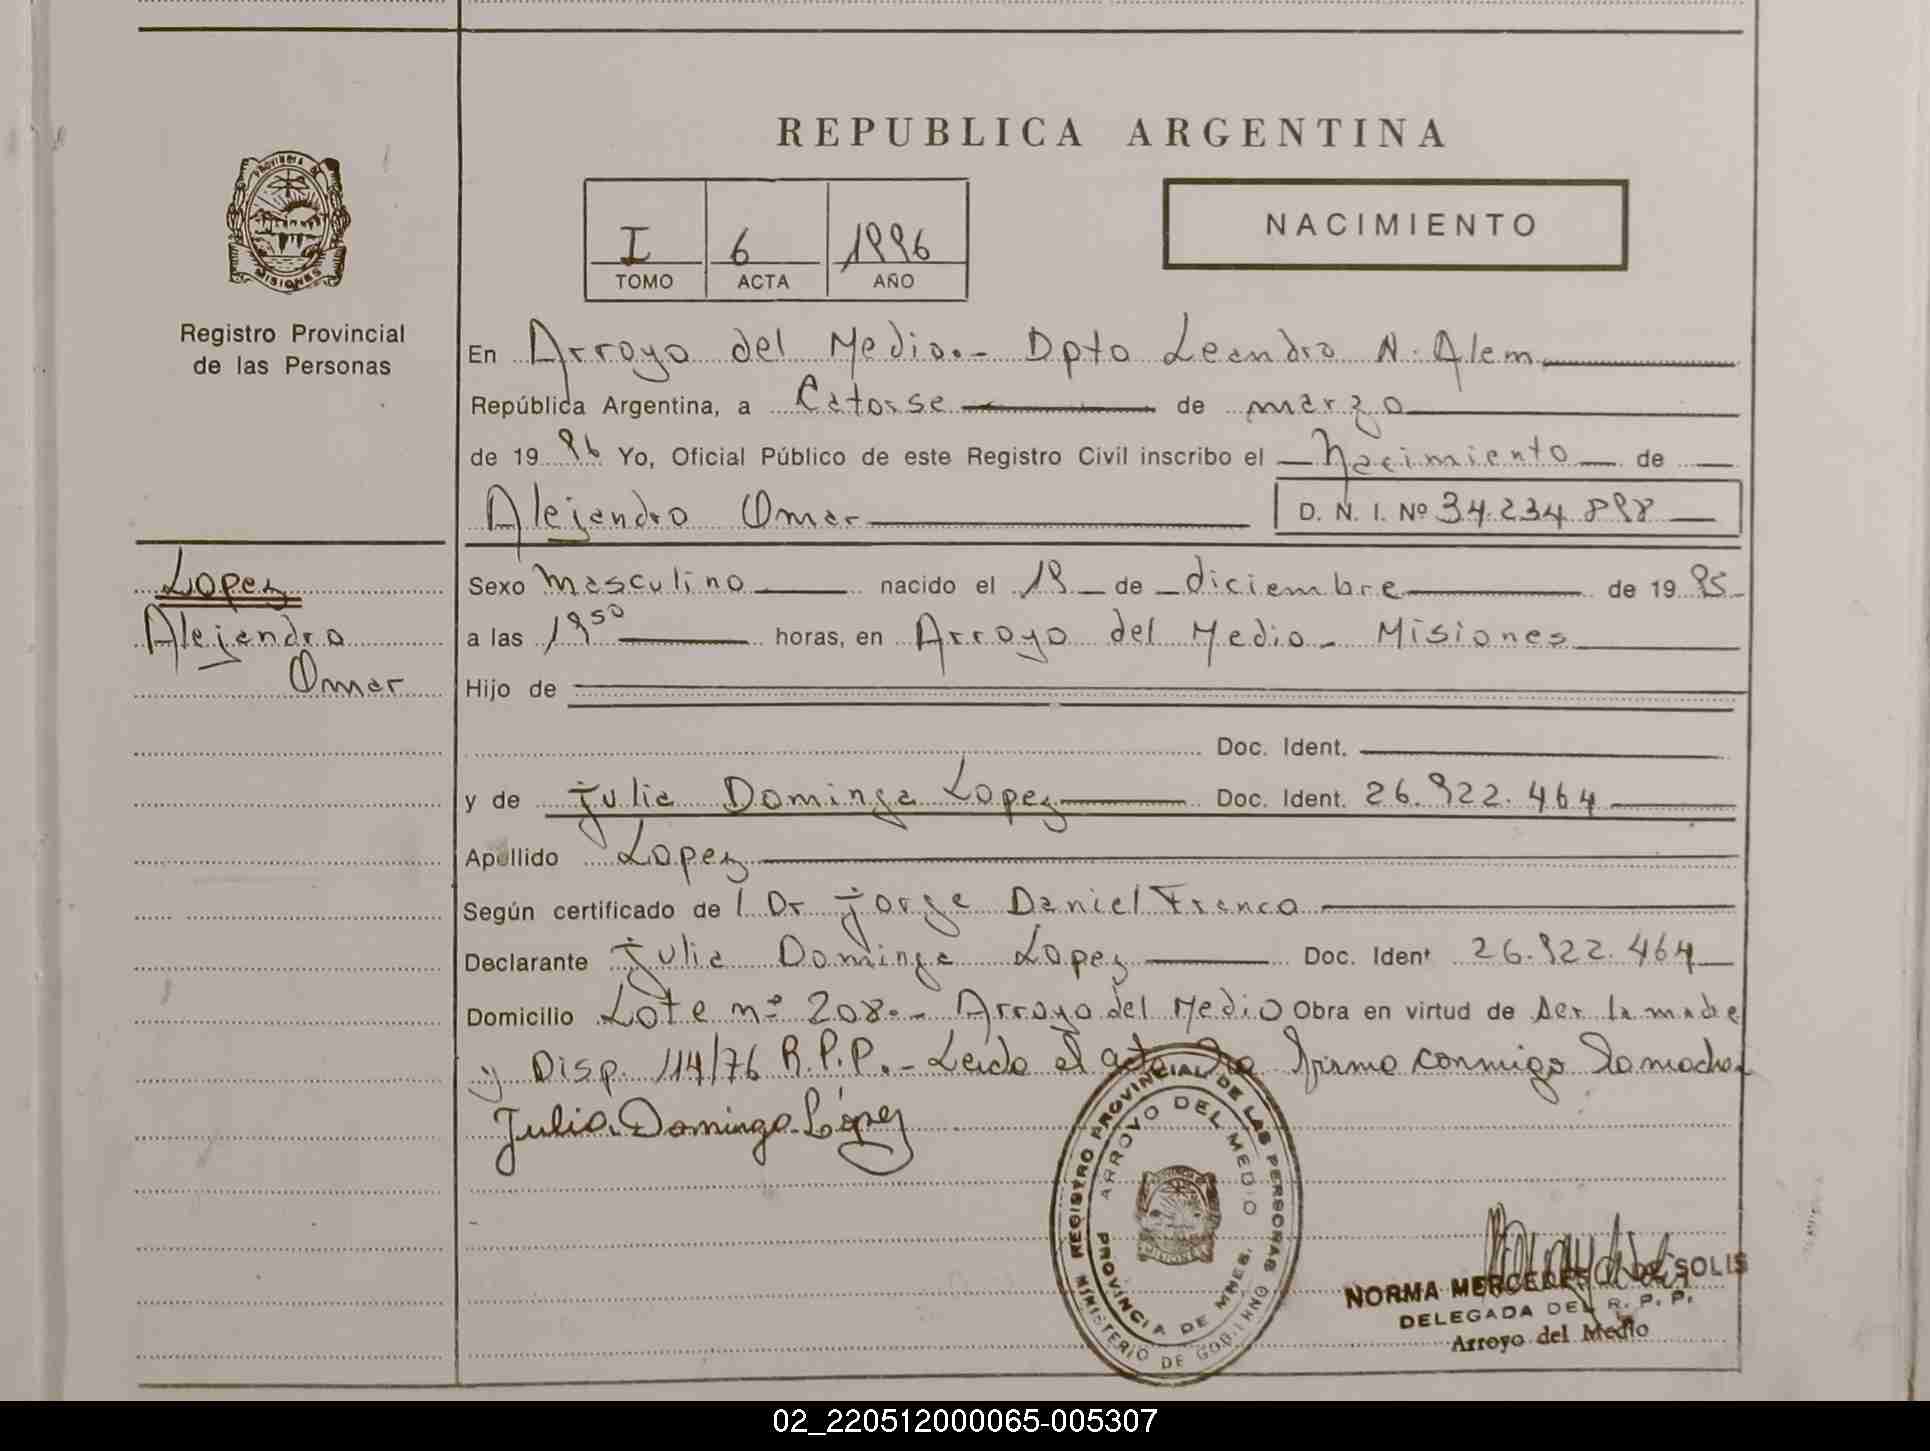 REPUBLICA ARGENTINA
PROVINCIA DE
MISIONES
Registro Provincial
de las Personas
I 6 1996
TOMO ACTA AÑO
NACIMIENTO
En Arroyo del Medio.- Dpto Leandro N. Alem
República Argentina, a Catorse de marzo
de 1996 Yo, Oficial Público de este Registro Civil inscribo el Nacimiento de
Alejandro Omar D. N. I. Nº 34.234.898
Lopez
Alejandro
Omar
Sexo Masculino nacido el 19 de diciembre de 1995
a las 19 50 horas, en Arroyo del Medio - Misiones
Hijo de
Doc. Ident.
y de Julia Dominga Lopez Doc. Ident. 26.922.464
Apellido Lopez
Según certificado de l Dr Jorge Daniel Franco
Declarante Julia Dominga Lopez Doc. Ident 26.922.464
Domicilio Lote nº 208.- Arroyo del Medio Obra en virtud de ser la madre
y Disp. 114/76 R.P.P.- Leida el acta la firma conmigo la madre
Julia Dominga López
REGISTRO PROVINCIAL DE LAS PERSONAS
MINISTERIO DE GOBIERNO
ARROYO DEL MEDIO
PROVINCIA DE MNES.
NORMA MERCEDES DE SOLIS
DELEGADA DEL R. P. P.
Arroyo del Medio
02_220512000065-005307